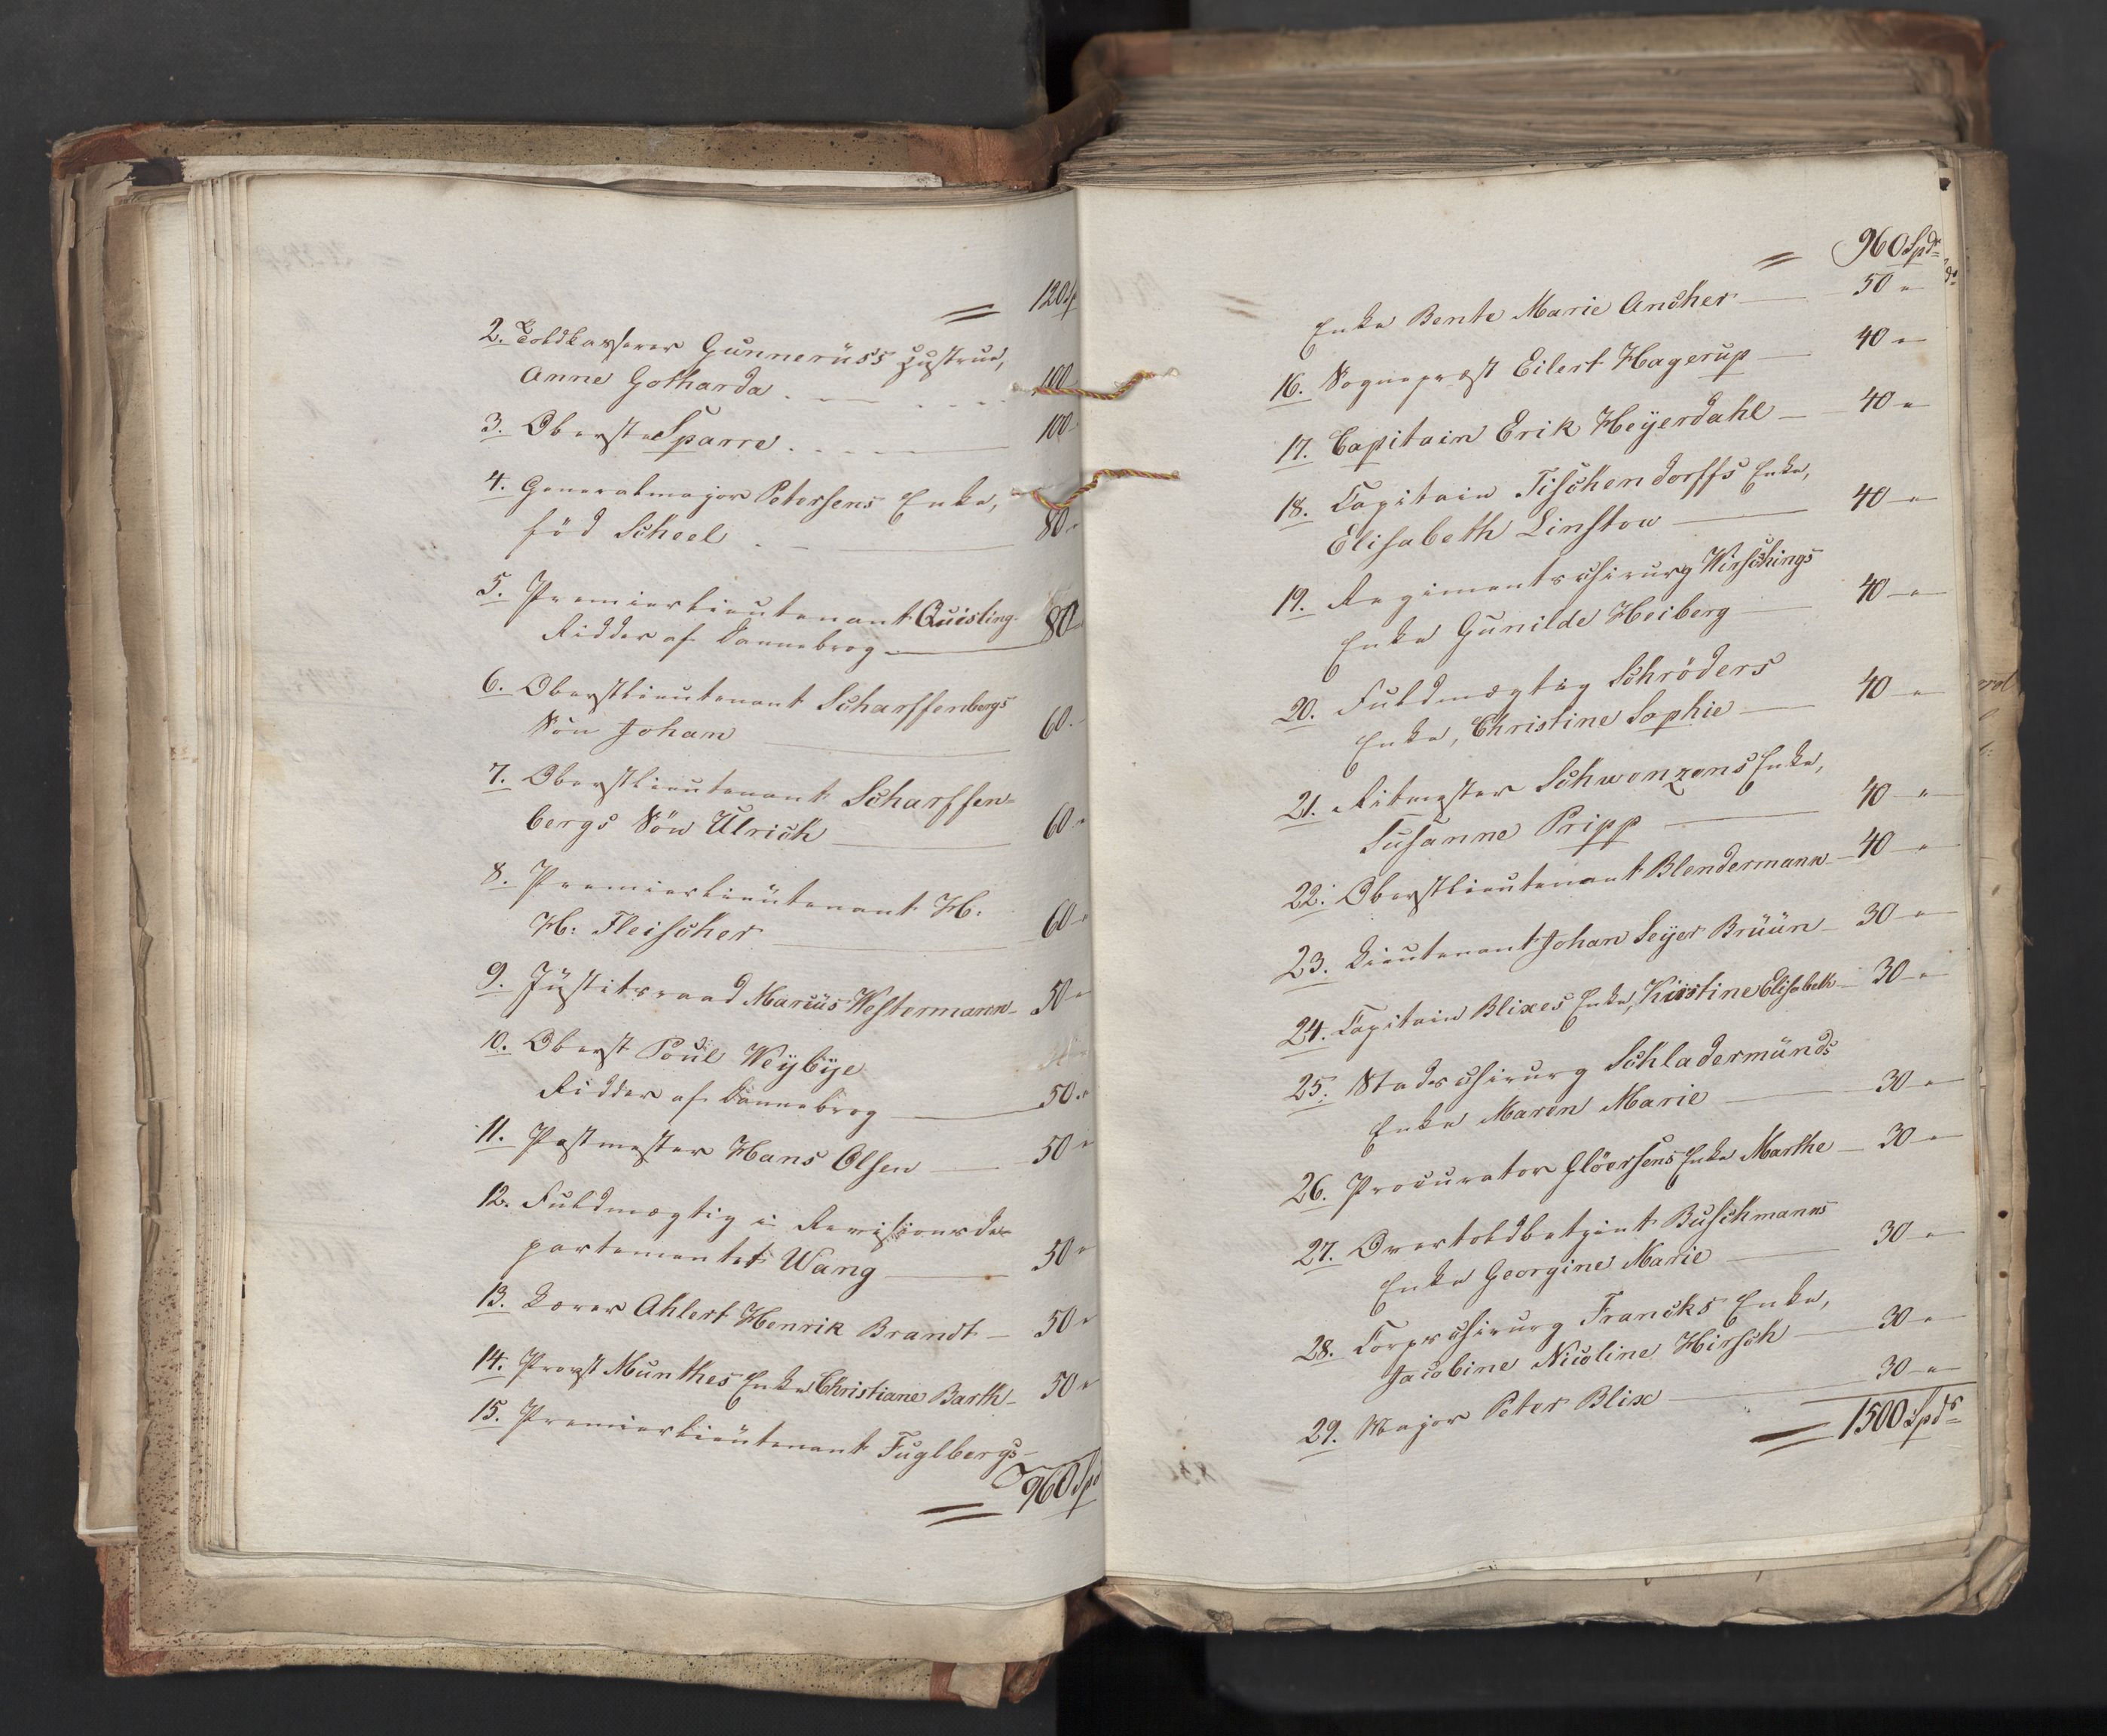 = 120 Sp
2. Toldkasserer Gunneruss Hustrue,
Anne Gotharda . — . . . 100
3. Oberste Sparre . . . — 100
4. Generalmajor Petersens Enke,
född Scheel . — 80 "
5. Premierlieutenant Quisling
Ridder af Dannebrog — 80
6. Oberstlieutenant Scharffenbergs
Sön Johan — 60 "
7. Oberstlieutenant Scharffen-
bergs Sön Ulrich — 60 "
8. Premierlieutenant H.
H: Fleischer — 60 "
9. Justitsraad Marcus Westermann — 50 "
10. Oberst Poul Weybye
Ridder af Dannebrog — 50 "
11. Postmester Hans Olsen — 50 "
12. Fuldmægtig i Revisionsde-
partementet Wang — 50 "
13. Lærer Ahlert Henrik Brandt — 50 "
14. Provst Munthes Enke Christiane Barth — 50 "
15. Premierlieutenant Fuglbergs
= 960 Sp
= 960 Spdr
Enke Bente Marie Ancher — 50 "
16. Sognepræst Eilert Hagerup — 40 "
17. Capitain Erik Heyerdahl — 40 "
18. Capitain Tischendorffs Enke,
Elisabeth Linstow — 40 "
19. Regimentschirurg Wirschings
Enke Gunilde Heiberg — 40 "
20. Fuldmægtig Schröders
Enke, Christine Sophie — 40 "
21. Ritmester Schwenzens Enke,
Susanne Pripp — 40 "
22. Oberstlieutenant Blendermann — 40 "
23. Lieutenant Johan Seyer Bruun — 30 "
24. Capitain Blixes Enke, Kirstine Elisabeth — 30 "
25. Stadschirurg Schladermunds
Enke Maren Marie — 30 "
26. Procurator Glöersens Enke Marthe — 30 "
27. Overtoldbetjent Buschmanns
Enke Georgine Marie — 30 "
28. Corpschirurg Francks Enke,
Jacobine Nicoline Hirsch — 30 "
29. Major Peter Blix — 30 "
= 1500 Spdr